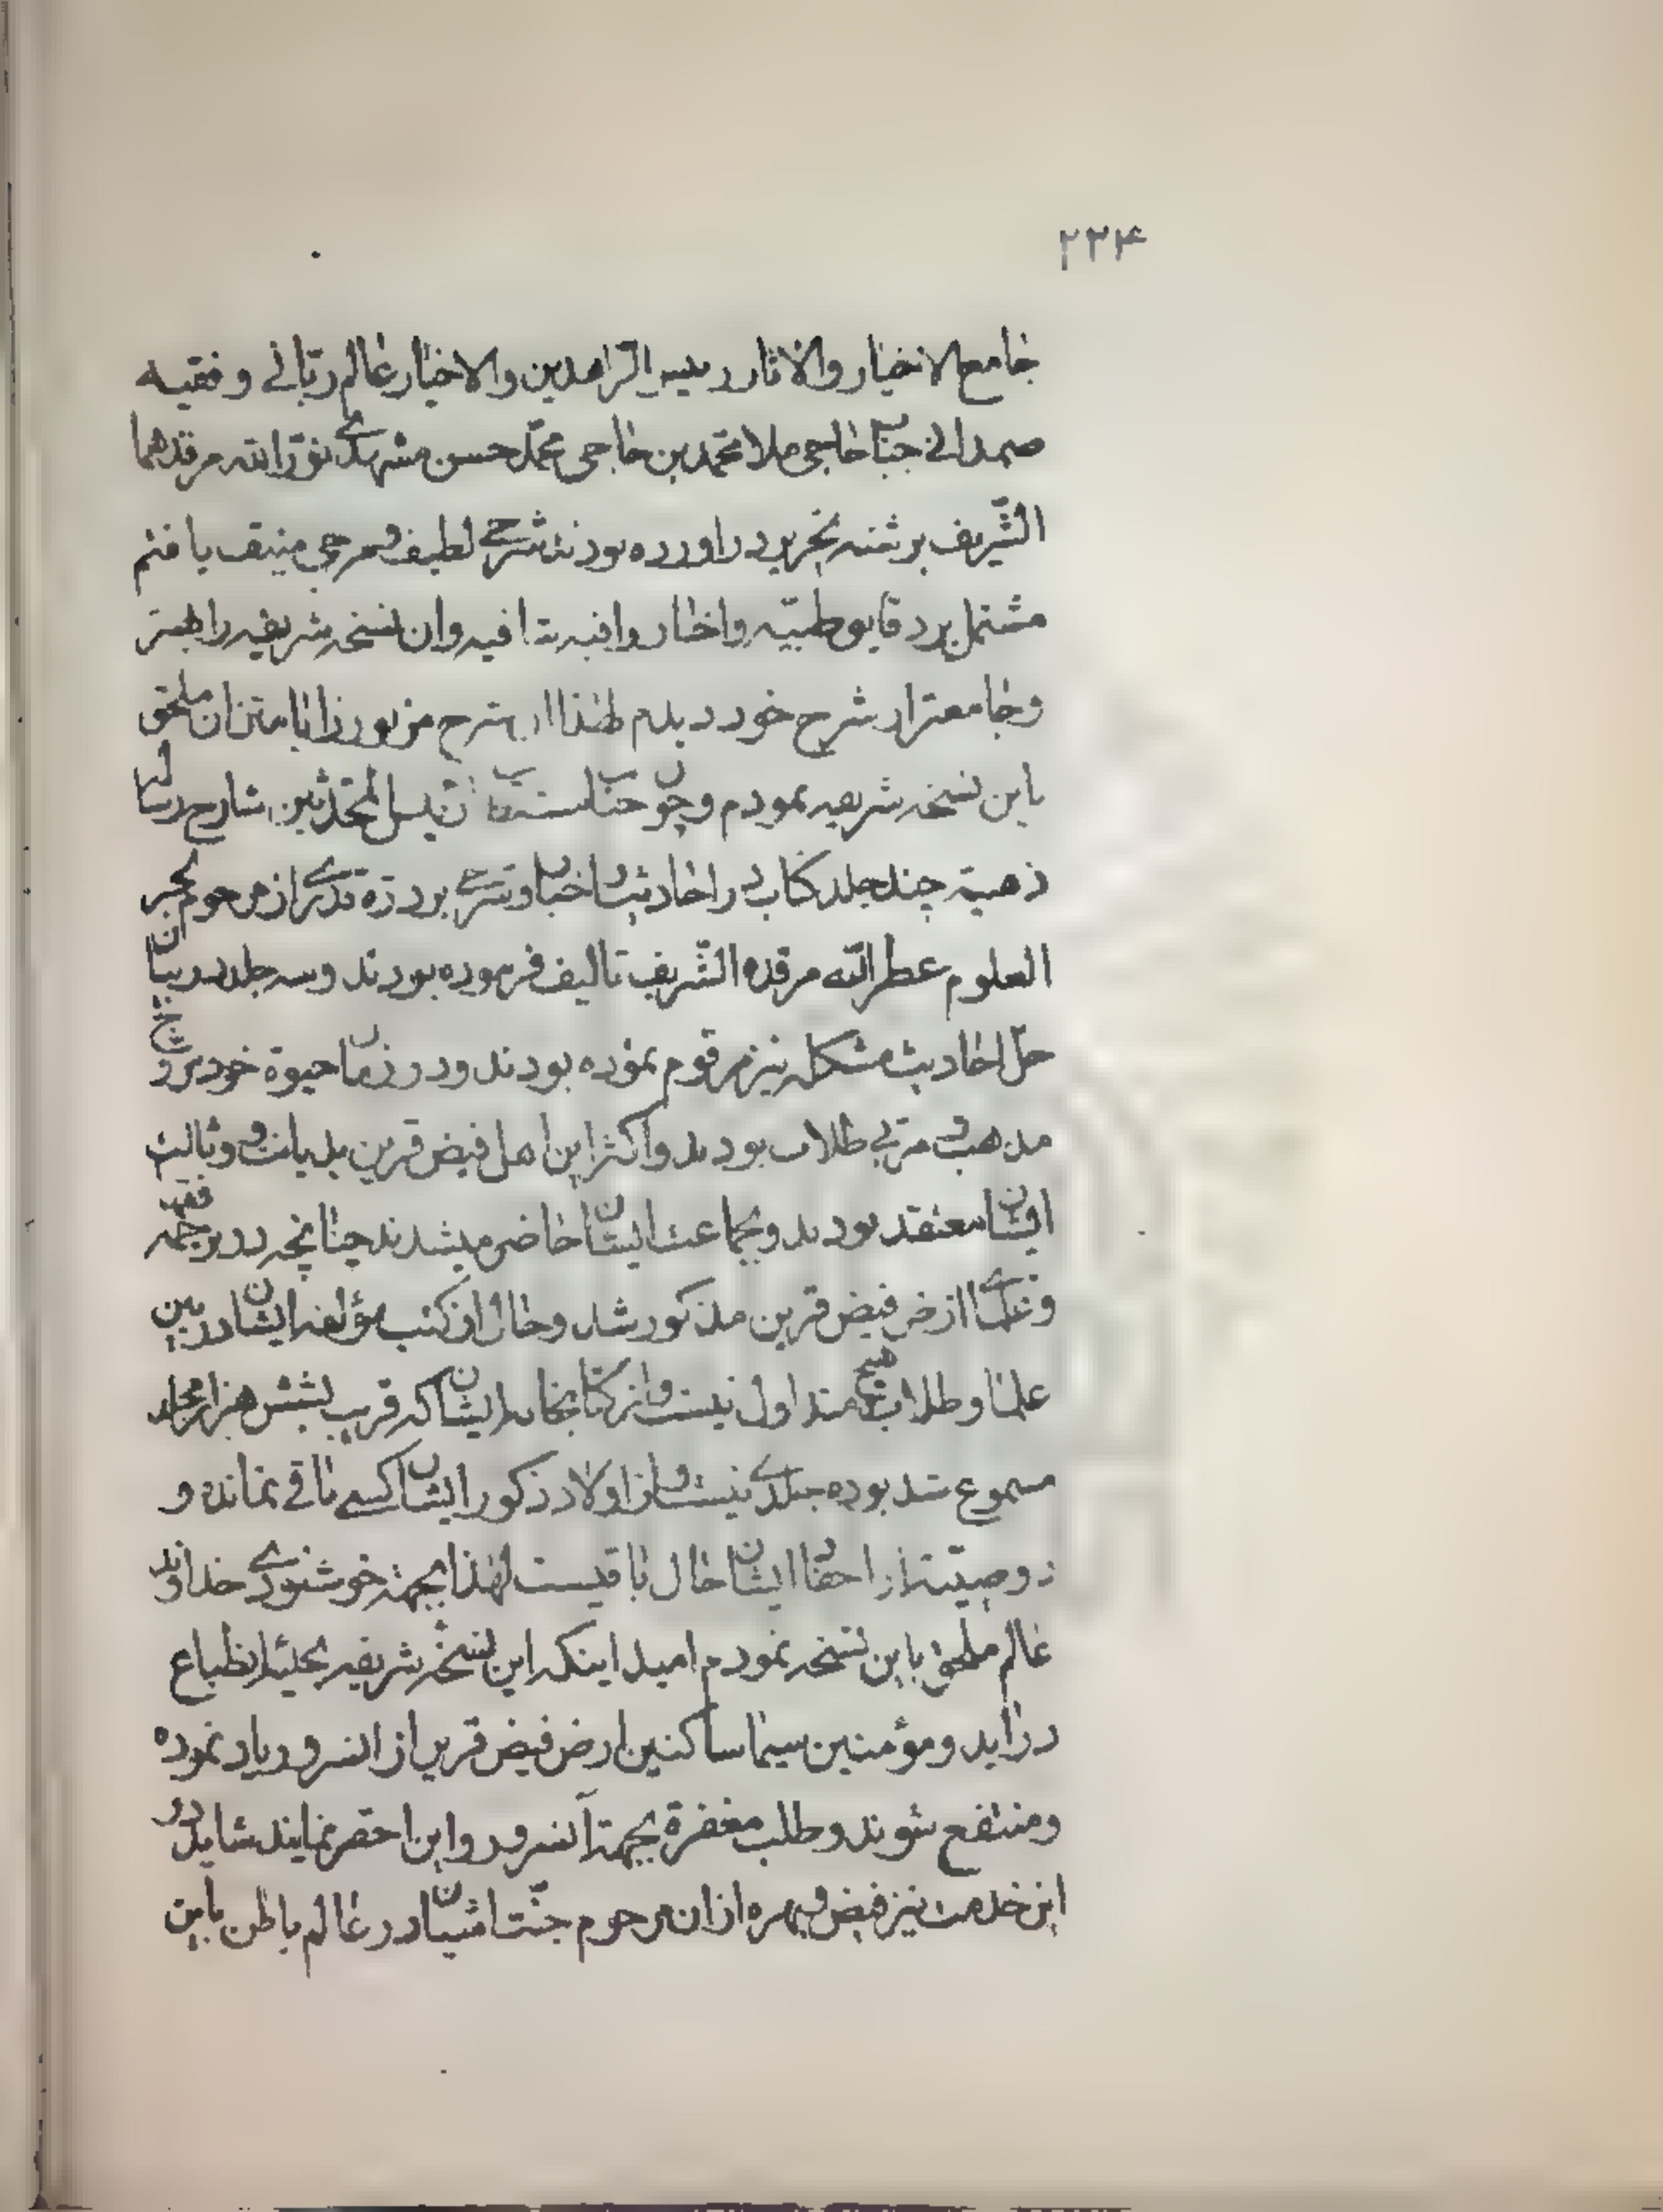 ۲۲۴
جامع الاخبار والاثار رئیس الزاهدین والاخیار عالم ربانی و فقیه
صمدانی جناب حاجی ملا محمد بن حاجی محمد حسن مشهدی نور الله مرقدهما
الشریف برشته تحریر دراورده بودند شرحی لطیف و مرجی منیف یافتم
مشتمل بر دقایق طبیه واخبار وافیه شافیه وان نسخه شریفه را بهتر
وجامعتر از شرح خود دیدم لهذا شرح مزبور را با متن ان ملحق
باین نسخه شریفه نمودم و چون جناب رئیس المحدثین شارح رساله
ذهبیه چند جلد کتاب در احادیث و اخبار و شرحی بر دره قدری از مرحوم بحر
العلوم عطر الله مرقده الشریف تالیف فرموده بودند وسه جلد در بیان
حل احادیث مشکله نیز مرقوم نموده بودند ودر زمان حیوة خود مروج
مذهب و مربی طلاب بودند واکثر این اهل فیض قرین بدیانت و وثاقت
ایشان معتقد بودند وبجماعت ایشان حاضر میشدند چنانچه در ترجمه فقها
وعلمای ارض فیض قرین مذکور شد وحال از کتب مؤلفه ایشان در بین
علما و طلاب هیچ متداول نیست و از کتابخانه ایشان که قریب بشش هزار مجلد
مسموع شد بوده جلدی نیست و از اولاد ذکور ایشان کسی باقی نمانده و
دو صبیه از احفاد ایشان حال باقیست لهذا بجهة خوشنودی خداوند
عالم ملحق باین نسخه نمودم امید اینکه این نسخه شریفه بحلیه انطباع
دراید ومؤمنین سیما ساکنین ارض فیض قرین از انسرور یاد نموده
ومنتفع شوند وطلب مغفرة بجهة آنسرور واین احقر نمایند شاید در
این خدمت نیز فیض و بهره ازان مرحوم جنت اشیان در عالم باطن باین